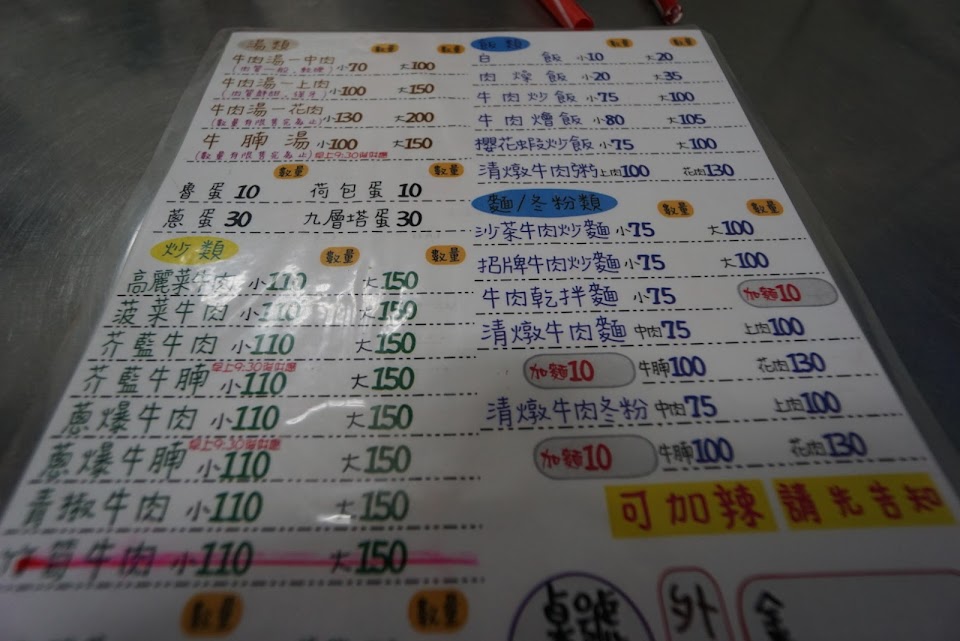 湯類 數量 數量
牛肉湯-中肉 小70 大100
牛肉湯-上肉 小100 大150
牛肉湯-花肉 小130 大200
(數量有限售完為止)
牛腩湯 小100 大150
(數量有限售完為止)早上9:30後供應
數量 數量
魯蛋10 荷包蛋10
蔥蛋30 九層塔蛋30
炒類 數量 數量
高麗菜牛肉 小110 大150
菠菜牛肉 小110 大150
芥藍牛肉 小110 大150
早上9:30後供應
芥藍牛腩 小110 大150
蔥爆牛肉 小110 大150
早上9:30後供應
蔥爆牛腩 小110 大150
青椒牛肉 小110 大150
牛肉 小110 大150
數量 數量
飯類 數量 數量
白飯 小10 大20
肉燥飯 小20 大35
牛肉炒飯 小75 大100
牛肉燴飯 小80 大105
櫻花蝦炒飯 小75 大100
清燉牛肉粥 上肉100 花肉130
麵/冬粉類 數量 數量
沙茶牛肉炒麵 小75 大100
招牌牛肉炒麵 小75 大100
牛肉乾拌麵 小75 加麵10
清燉牛肉麵 中肉75 上肉100
加麵10 牛腩100 花肉130
清燉牛肉冬粉 中肉75 上肉100
加麵10 牛腩100 花肉130
可加辣 請先告知
桌號 外 金